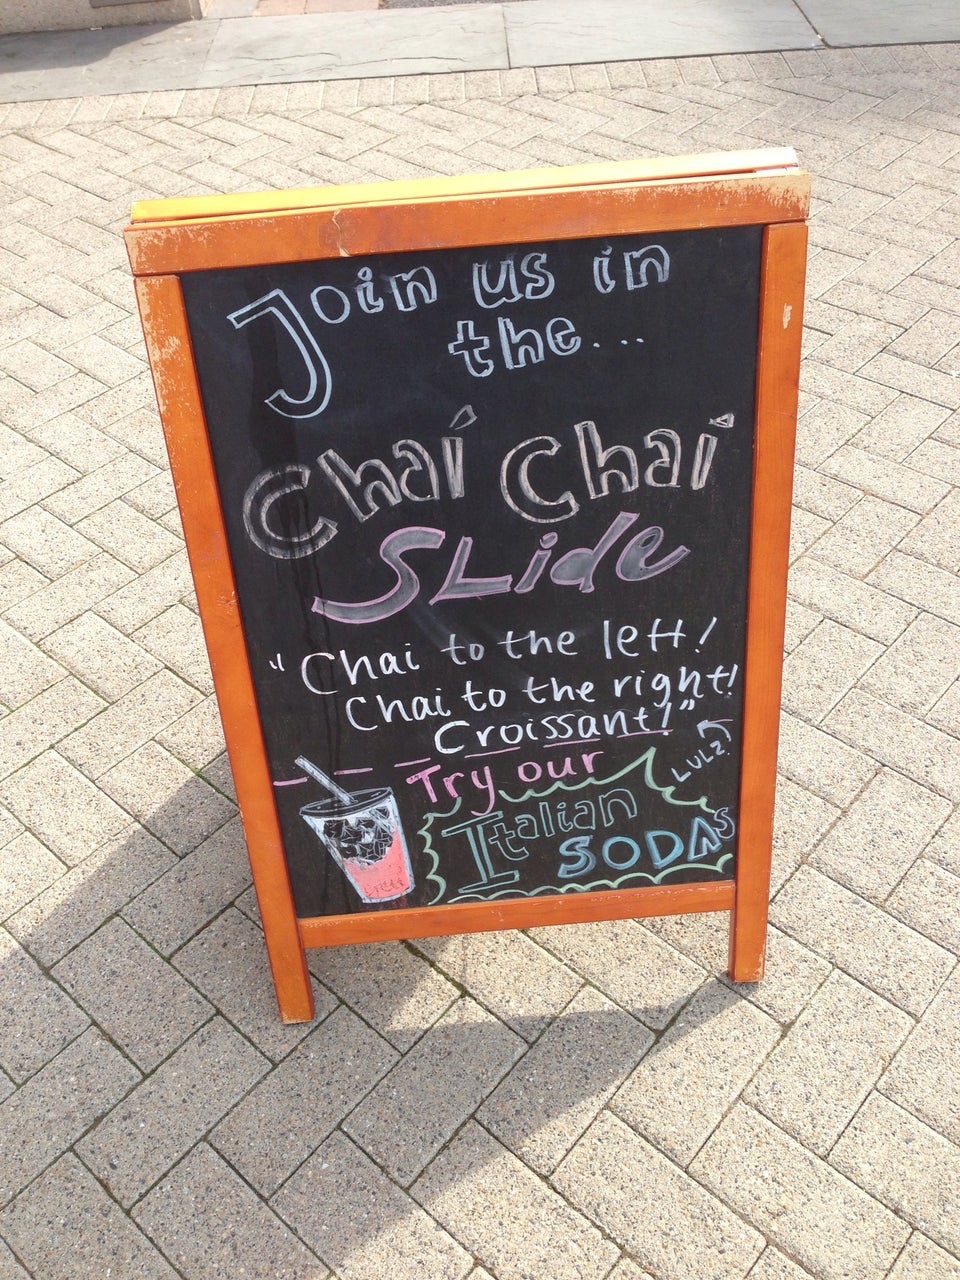 Join us in
the...
Chai Chai
Slide
"Chai to the left!
Chai to the right!
Croissant!"
LULZ!
Try our
Italian
SODAs